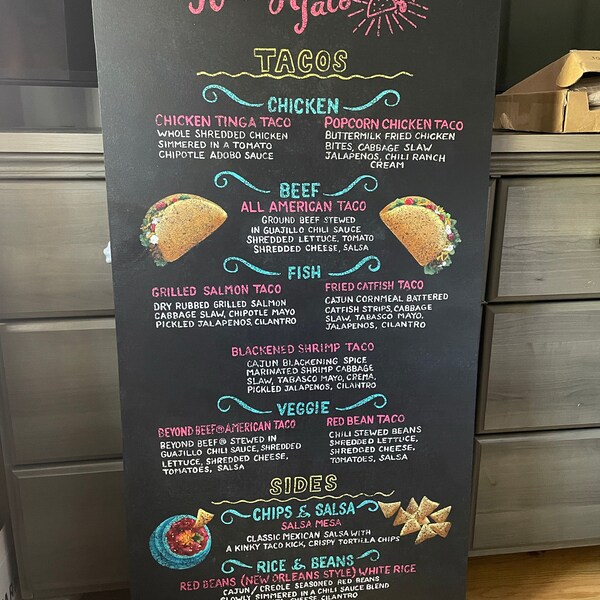 Taco
TACOS
CHICKEN
CHICKEN TINGA TACO
WHOLE SHREDDED CHICKEN
SIMMERED IN A TOMATO
CHIPOTLE ADOBO SAUCE
POPCORN CHICKEN TACO
BUTTERMILK FRIED CHICKEN
BITES, CABBAGE SLAW
JALAPENOS, CHILI RANCH
CREAM
BEEF
ALL AMERICAN TACO
GROUND BEEF STEWED
IN GUAJILLO CHILI SAUCE
SHREDDED LETTUCE, TOMATO
SHREDDED CHEESE, SALSA
FISH
GRILLED SALMON TACO
DRY RUBBED GRILLED SALMON
CABBAGE SLAW, CHIPOTLE MAYO
PICKLED JALAPENOS, CILANTRO
FRIED CATFISH TACO
CAJUN CORNMEAL BATTERED
CATFISH STRIPS, CABBAGE
SLAW, TABASCO MAYO,
JALAPENOS, CILANTRO
BLACKENED SHRIMP TACO
CAJUN BLACKENING SPICE
MARINATED SHRIMP CABBAGE
SLAW, TABASCO MAYO, CREMA,
PICKLED JALAPENOS, CILANTRO
VEGGIE
BEYOND BEEF® AMERICAN TACO
BEYOND BEEF® STEWED IN
GUAJILLO CHILI SAUCE, SHREDDED
LETTUCE, SHREDDED CHEESE,
TOMATOES, SALSA
RED BEAN TACO
CHILI STEWED BEANS
SHREDDED LETTUCE,
SHREDDED CHEESE,
TOMATOES, SALSA
SIDES
CHIPS & SALSA
SALSA MESA
CLASSIC MEXICAN SALSA WITH
A KINKY TACO KICK, CRISPY TORTILLA CHIPS
RICE & BEANS
RED BEANS (NEW ORLEANS STYLE) WHITE RICE
CAJUN / CREOLE SEASONED RED BEANS
SLOWLY SIMMERED IN A CHILI SAUCE BLEND
CHEESE, CILANTRO